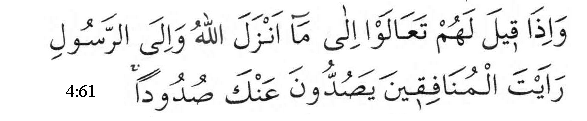 وَاِذَا قٖيلَ لَهُمْ تَعَالَوْا اِلٰى مَٓا اَنْزَلَ اللّٰهُ وَاِلَى الرَّسُولِ
رَاَيْتَ الْمُنَافِقٖينَ يَصُدُّونَ عَنْكَ صُدُودًاۚ 4:61